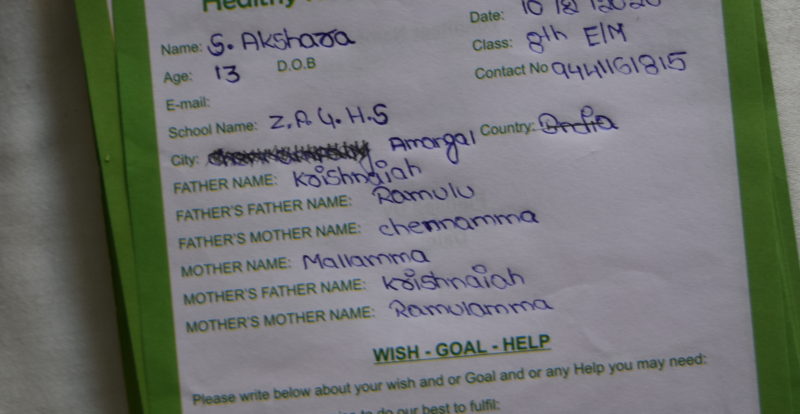 Healthy
Date: 10 12 2020
Name: S. Akshara
Class: 8th E/M
Age: 13 D.O.B
Contact No 9441161815
E-mail:
School Name: Z.P.G.H.S
City: Amargal Country: India
FATHER NAME: Krishnaiah
FATHER'S FATHER NAME: Ramulu
FATHER'S MOTHER NAME: chennamma
MOTHER NAME: Mallamma
MOTHER'S FATHER NAME: Krishnaiah
MOTHER'S MOTHER NAME: Ramulamma
WISH - GOAL - HELP
Please write below about your wish and or Goal and or any Help you may need:
to do our best to fulfil: